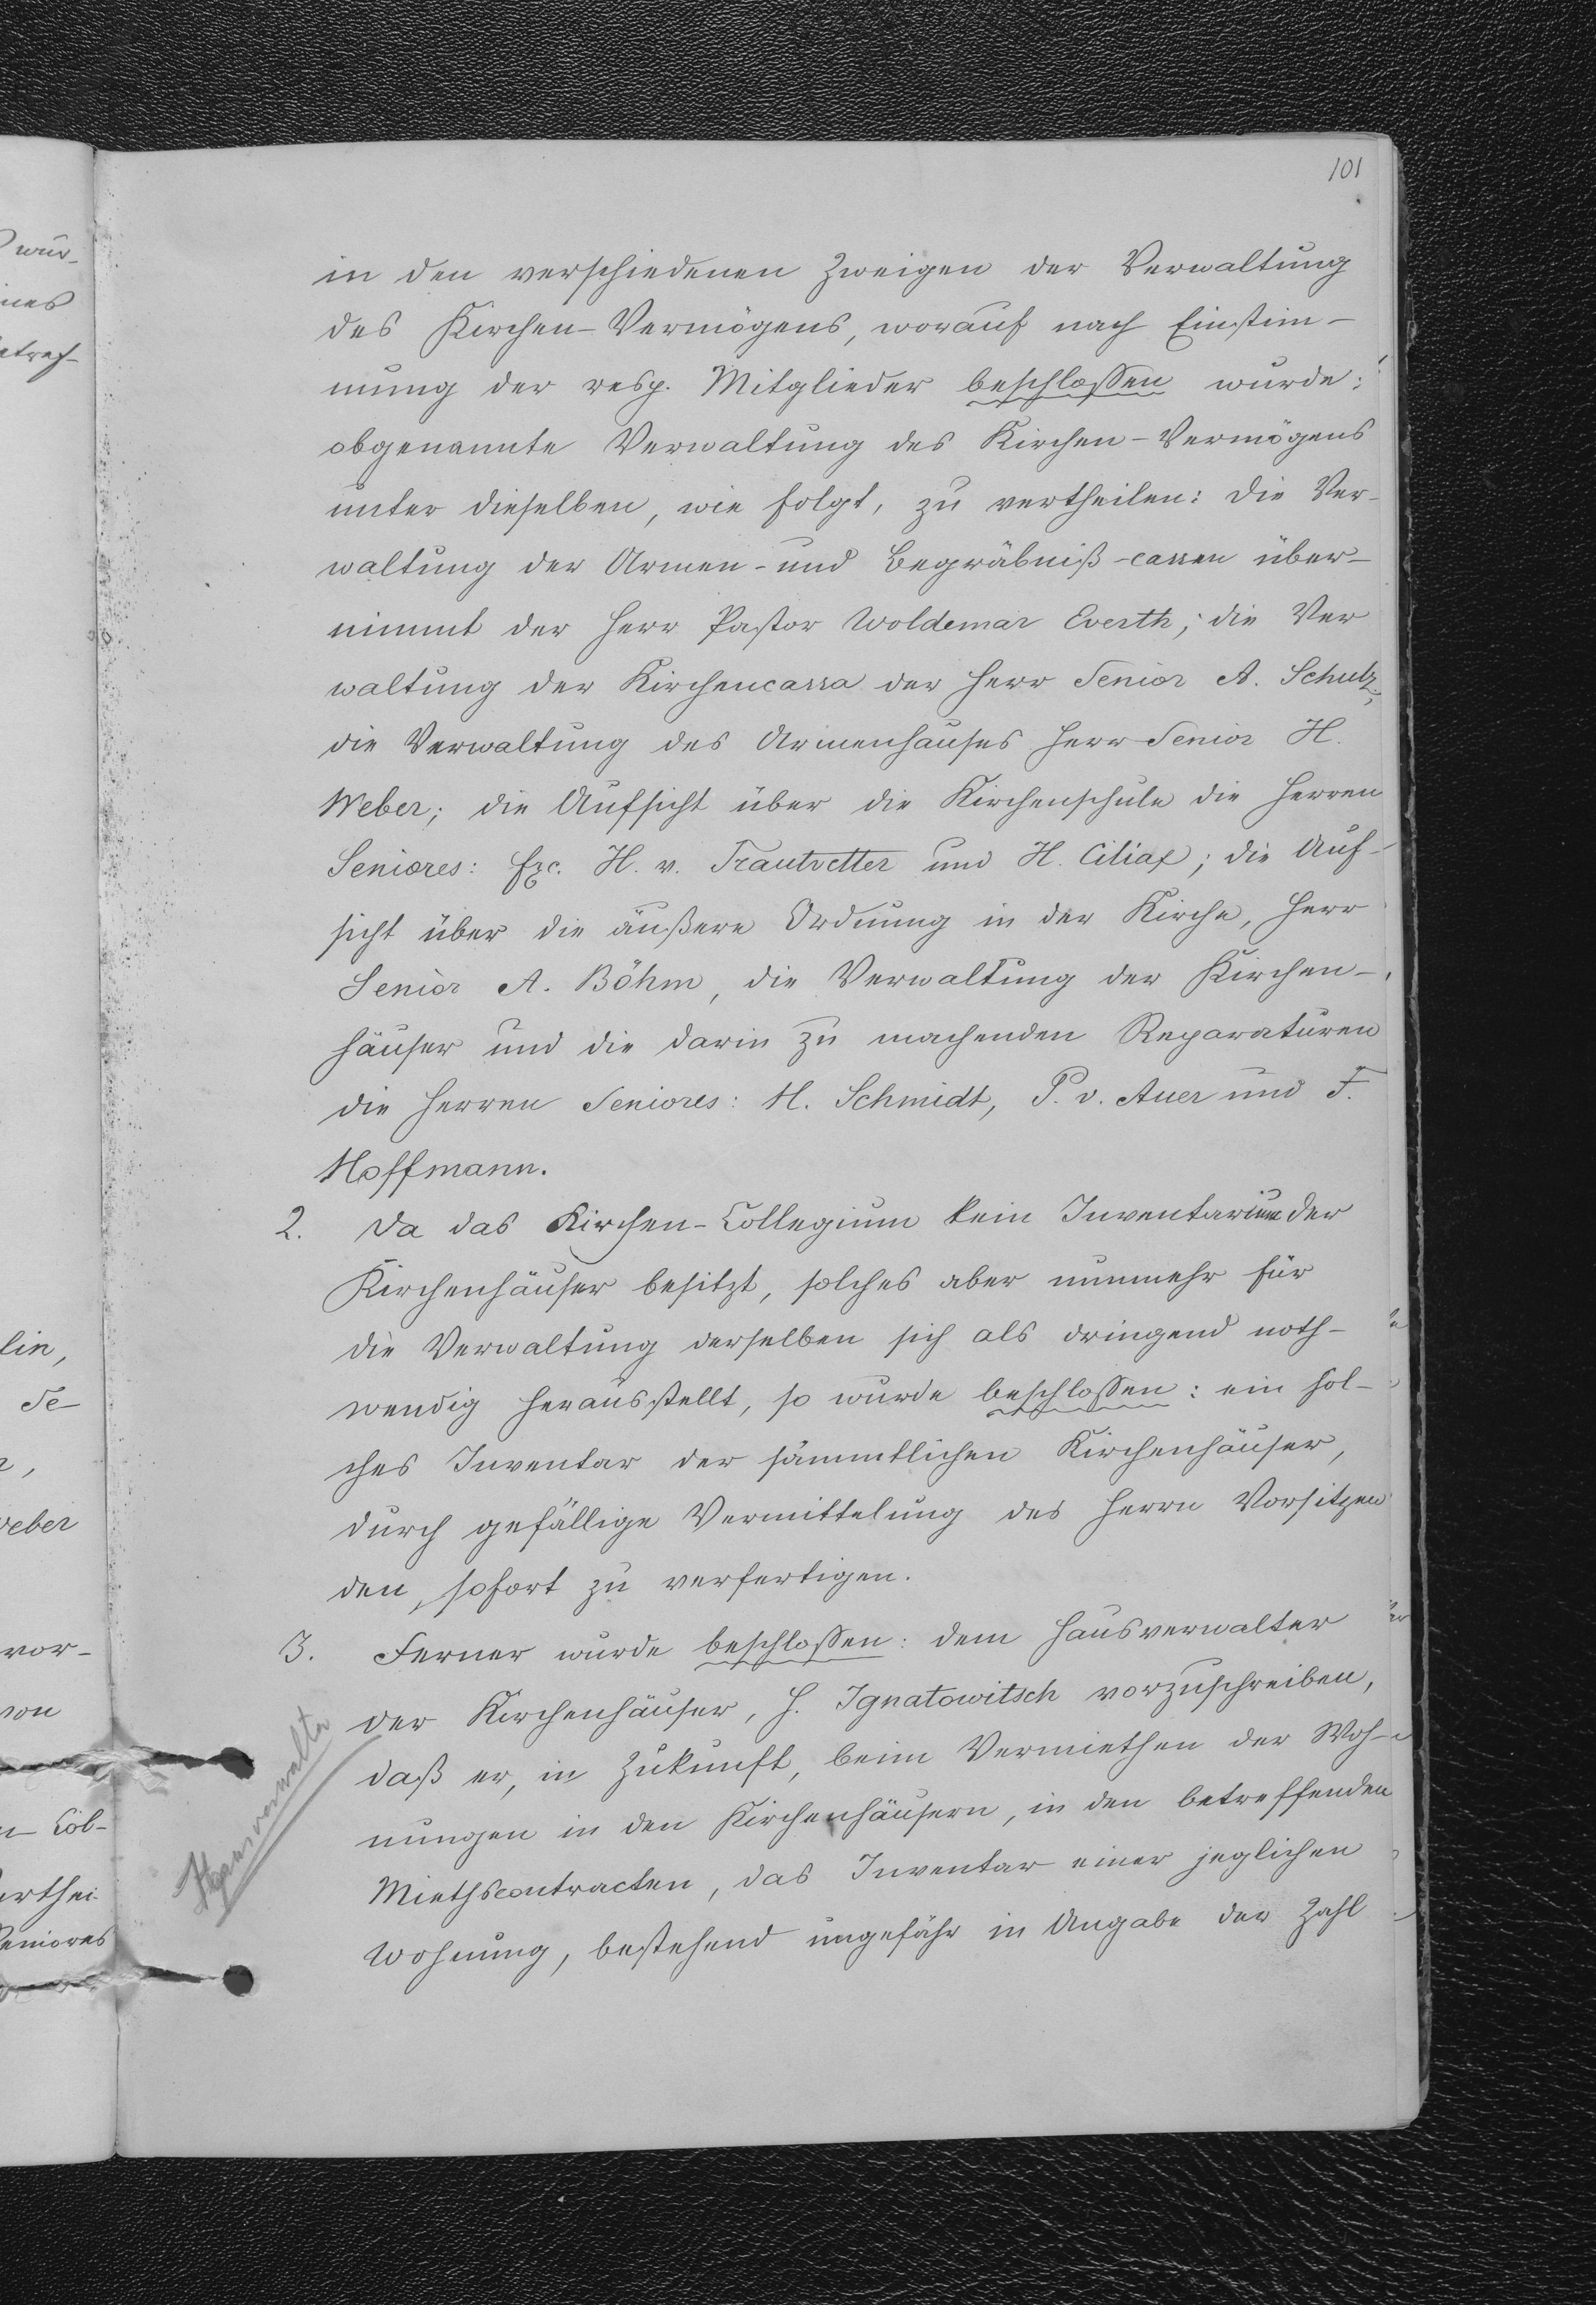 101
in den verschiedenen Zweigen der Verwaltung
des Kirchen-Vermögens, worauf nach Einstim-
mung der resp. Mitglieder beschlossen wurde:
obgenannte Verwaltung des Kirchen-Vermögens
unter dieselben, wie folgt, zu vertheilen: die Ver-
waltung der Armen- und Begräbniß-cassen über-
nimmt der Herr Pastor Woldemar Everth; die Ver
waltung der Kirchencassa der Herr Senior A. Schulz,
die Verwaltung des Armenhauses Herr Senior H.
Weber; die Aufsicht über die Kirchenschule die Herren
Seniores: Exc. H. v. Trautvetter und H. Ciliax; die Auf-
sicht über die äußere Ordnung in der Kirche, Herr
Senior A. Böhm, die Verwaltung der Kirchen-
häuser und die darin zu machenden Reparaturen
die Herren Seniores: H. Schmidt, P. v. Auer und F.
Hoffmann.
2. Da das Kirchen-Collegium kein Inventarium der
Kirchenhäuser besitzt, solches aber nunmehr für
die Verwaltung derselben sich als dringend noth-
wendig herausstellt, so wurde beschlossen: ein sol-
ches Inventar der sämmtlichen Kirchenhäuser,
durch gefällige Vermittelung des Herrn Vorsitzen
den, sofort zu verfertigen.
3. Ferner wurde beschlossen: dem Hausverwalter
der Kirchenhäuser, H. Ignatowitsch vorzuschreiben,
daß er, in Zukunft, beim Vermiethen der Woh-
nungen in den Kirchenhäusern, in den betreffenden
Miethscontracten, das Inventar einer jeglichen
Wohnung, bestehend ungefähr in Angabe der Zahl
Hausverwalter